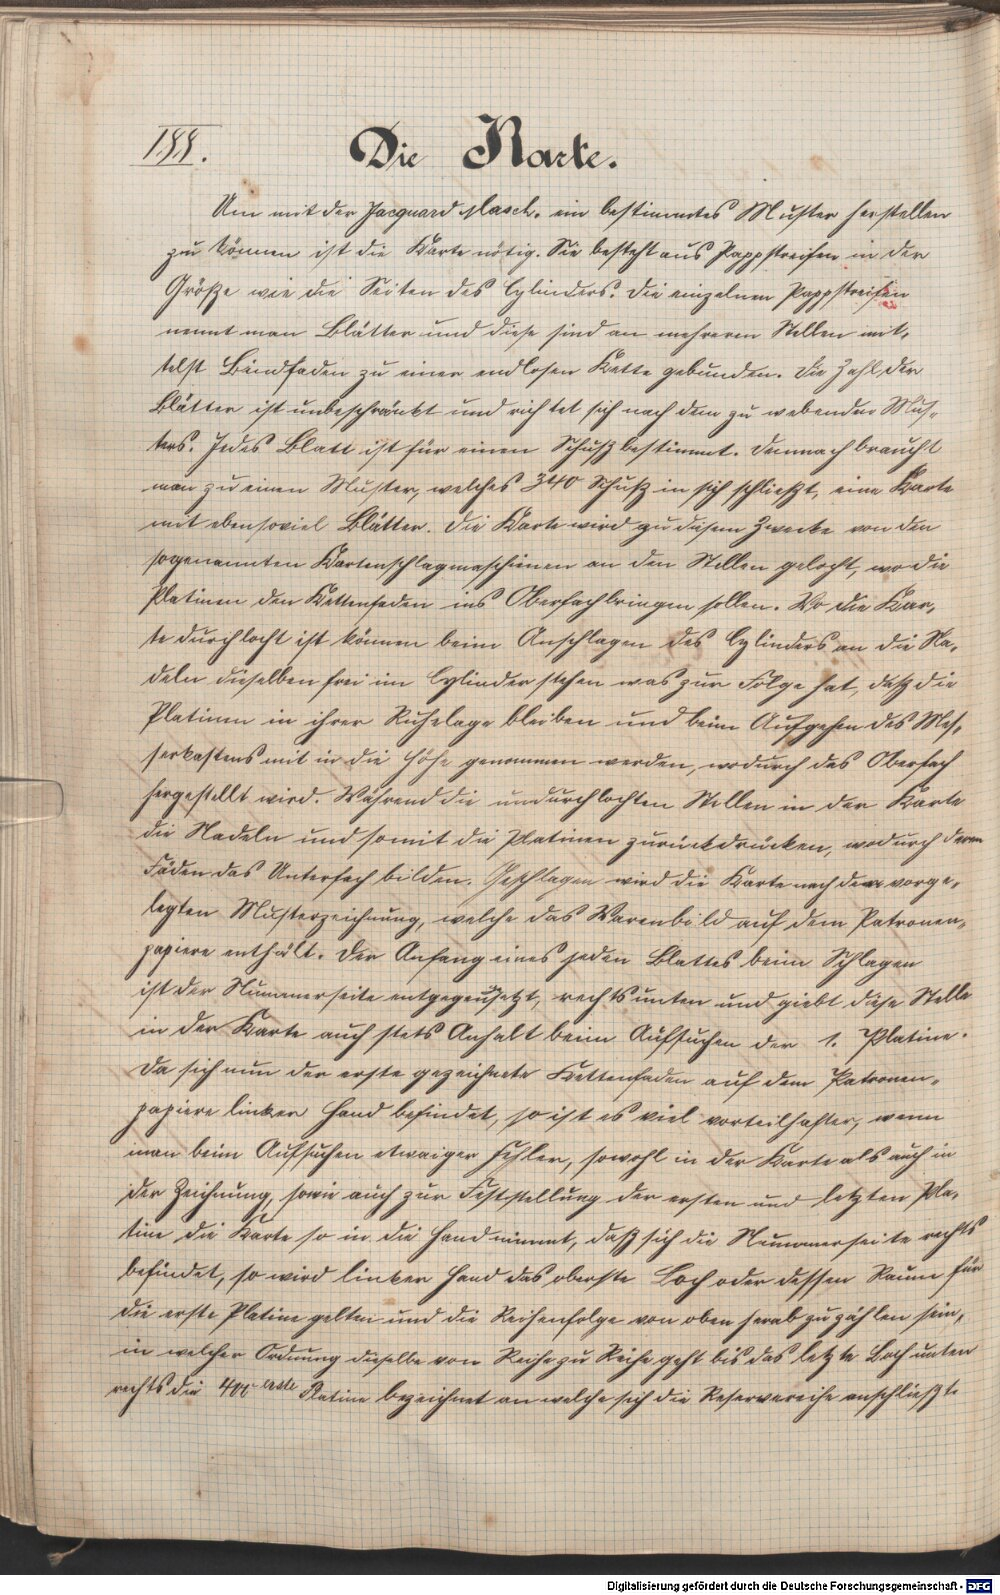 188.
Die Karte.
Um mit der Jacquard Masch. ein bestimmtes Muster herstellen
zu können ist die Karte nötig. Sie besteht aus Pappstreifen in der
Größe wie die Seiten des Cylinders. Die einzelnen Pappstreifen
nennt man Blätter und diese sind an mehreren Stellen mit,
telst Bindfaden zu einer endlosen Kette gebunden. Die Zahl der
Blätter ist unbeschränkt und richtet sich nach dem zu webenden Mus,
ters. Jedes Blatt ist für einen Schuß bestimmt. Demnach braucht
man zu einen Muster, welches 340 Schuß in sich schließt, eine Karte
mit ebensoviel Blätter. Die Karte wird zu diesem Zwecke von den
sogenannten Kartenschlagmaschienen an den Stellen gelocht, wo die
Platinen den Kettenfaden ins Oberfach bringen sollen. Wo die Kar,
te durchlocht ist können beim Anschlagen des Cylinders an die Na,
deln dieselben frei im Cylinder stehen was zur Folge hat, daß die
Platinen in ihrer Ruhelage bleiben und beim Aufgehen des Mes,
serkastens mit in die Höhe genommen werden, wodurch das Oberfach
hergestellt wird. Während die undurchlochten Stellen in der Karte
die Nadeln und somit die Platinen zurückdrücken, wodurch deren
Fäden das Unterfach bilden. Geschlagen wird die Karte nach der vorge,
legten Musterzeichnung, welche das Warenbild auf dem Patronen,
papiere enthält. Der Anfang eines jeden Blattes beim Schlagen
ist der Nummerseite entgegengesetzt, rechts unten und giebt diese Stelle
in der Karte auch stets Anhalt beim Aufsuchen der 1. Platine.
Da sich nun der erste gezeichnete Kettenfaden auf dem Patronen,
papiere linker Hand befindet, so ist es viel vorteilhafter, wenn
man beim Aufsuchen etwaiger Fehler, sowohl in der Karte als auch in
der Zeichnung, sowie auch zur Feststellung der ersten und letzten Pla,
tine die Karte so in die Hand nimmt, daß sich die Nummerseite rechts
befindet, so wird linker Hand das oberste Loch oder dessen Raum für
die erste Platine gelten und die Reihenfolge von oben herab zu zählen sein,
in welcher Ordnung dieselbe von Reihe zu Reihe geht bis das letzte Loch unten
rechts die 400 Platine bezeichnet an welche sich die Reservereihe anschließt
Digitalisierung gefördert durch die Deutsche Forschungsgemeinschaft - DFG